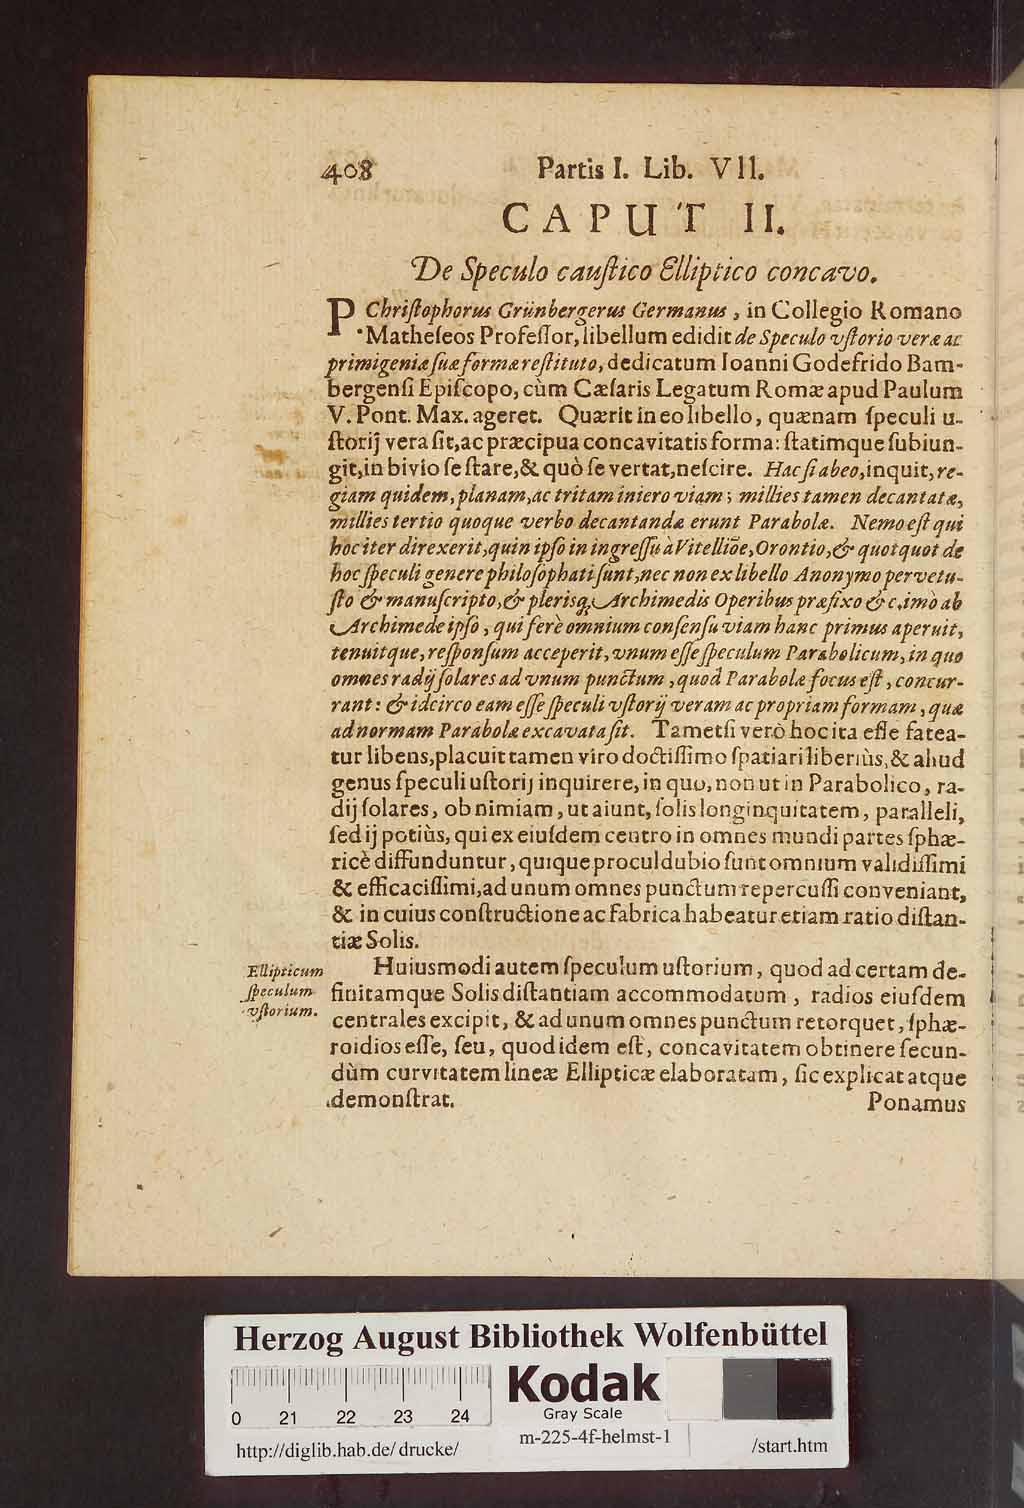 408 Partis I. Lib. VII.
CAPUT II.
De Speculo cauſtico Elliptico concavo.
P Chriſtophorus Grünbergerus Germanus, in Collegio Romano
Matheſeos Profeſſor, libellum edidit de Speculo vſtorio veræ ac
primigeniæ ſuæ formæ reſtituto, dedicatum Ioanni Godefrido Bam-
bergenſi Epiſcopo, cùm Cæſaris Legatum Romæ apud Paulum
V. Pont. Max. ageret. Quærit in eo libello, quænam ſpeculi u-
ſtorij vera ſit, ac præcipua concavitatis forma: ſtatimque ſubiun-
git, in bivio ſe ſtare, & quò ſe vertat, neſcire. Hac ſi abeo, inquit, re-
giam quidem, planam, ac tritam iniero viam; millies tamen decantatæ,
millies tertio quoque verbo decantandæ erunt Parabolæ. Nemo eſt qui
hoc iter direxerit, quin ipſo in ingreſſu à Vitellioe, Orontio, & quotquot de
hoc ſpeculi genere philoſophati ſunt, nec non ex libello Anonymo pervetu-
ſto & manuſcripto, & plerisq; Archimedis Operibus præfixo &c, imò ab
Archimede ipſo, qui ferè omnium conſenſu viam hanc primus aperuit,
tenuitque, reſponſum acceperit, vnum eſſe ſpeculum Parabolicum, in quo
omnes radij ſolares ad vnum punctum, quod Parabolæ focus eſt, concur-
rant: & idcirco eam eſſe ſpeculi vſtorij veram ac propriam formam, quæ
ad normam Parabolæ excavata ſit. Tametſi verò hoc ita eſſe fatea-
tur libens, placuit tamen viro doctiſſimo ſpatiari liberiùs, & aliud
genus ſpeculi uſtorij inquirere, in quo, non ut in Parabolico, ra-
dij ſolares, ob nimiam, ut aiunt, ſolis longinquitatem, paralleli,
ſed ij potiùs, qui ex eiuſdem centro in omnes mundi partes ſphæ-
ricè diffunduntur, quique procul dubio ſunt omnium validiſſimi
& efficaciſſimi, ad unum omnes punctum repercuſſi conveniant,
& in cuius conſtructione ac fabrica habeatur etiam ratio diſtan-
tiæ Solis.
Ellipticum
ſpeculum
vſtorium.
Huiusmodi autem ſpeculum uſtorium, quod ad certam de-
finitamque Solis diſtantiam accommodatum, radios eiuſdem
centrales excipit, & ad unum omnes punctum retorquet, ſphæ-
roidios eſſe, ſeu, quod idem eſt, concavitatem obtinere ſecun-
dùm curvitatem lineæ Ellipticæ elaboratam, ſic explicat atque
demonſtrat.
Ponamus
Herzog August Bibliothek Wolfenbüttel
0 21 22 23 24
Kodak
Gray Scale
http://diglib.hab.de/drucke/ m-225-4f-helmst-1 /start.htm